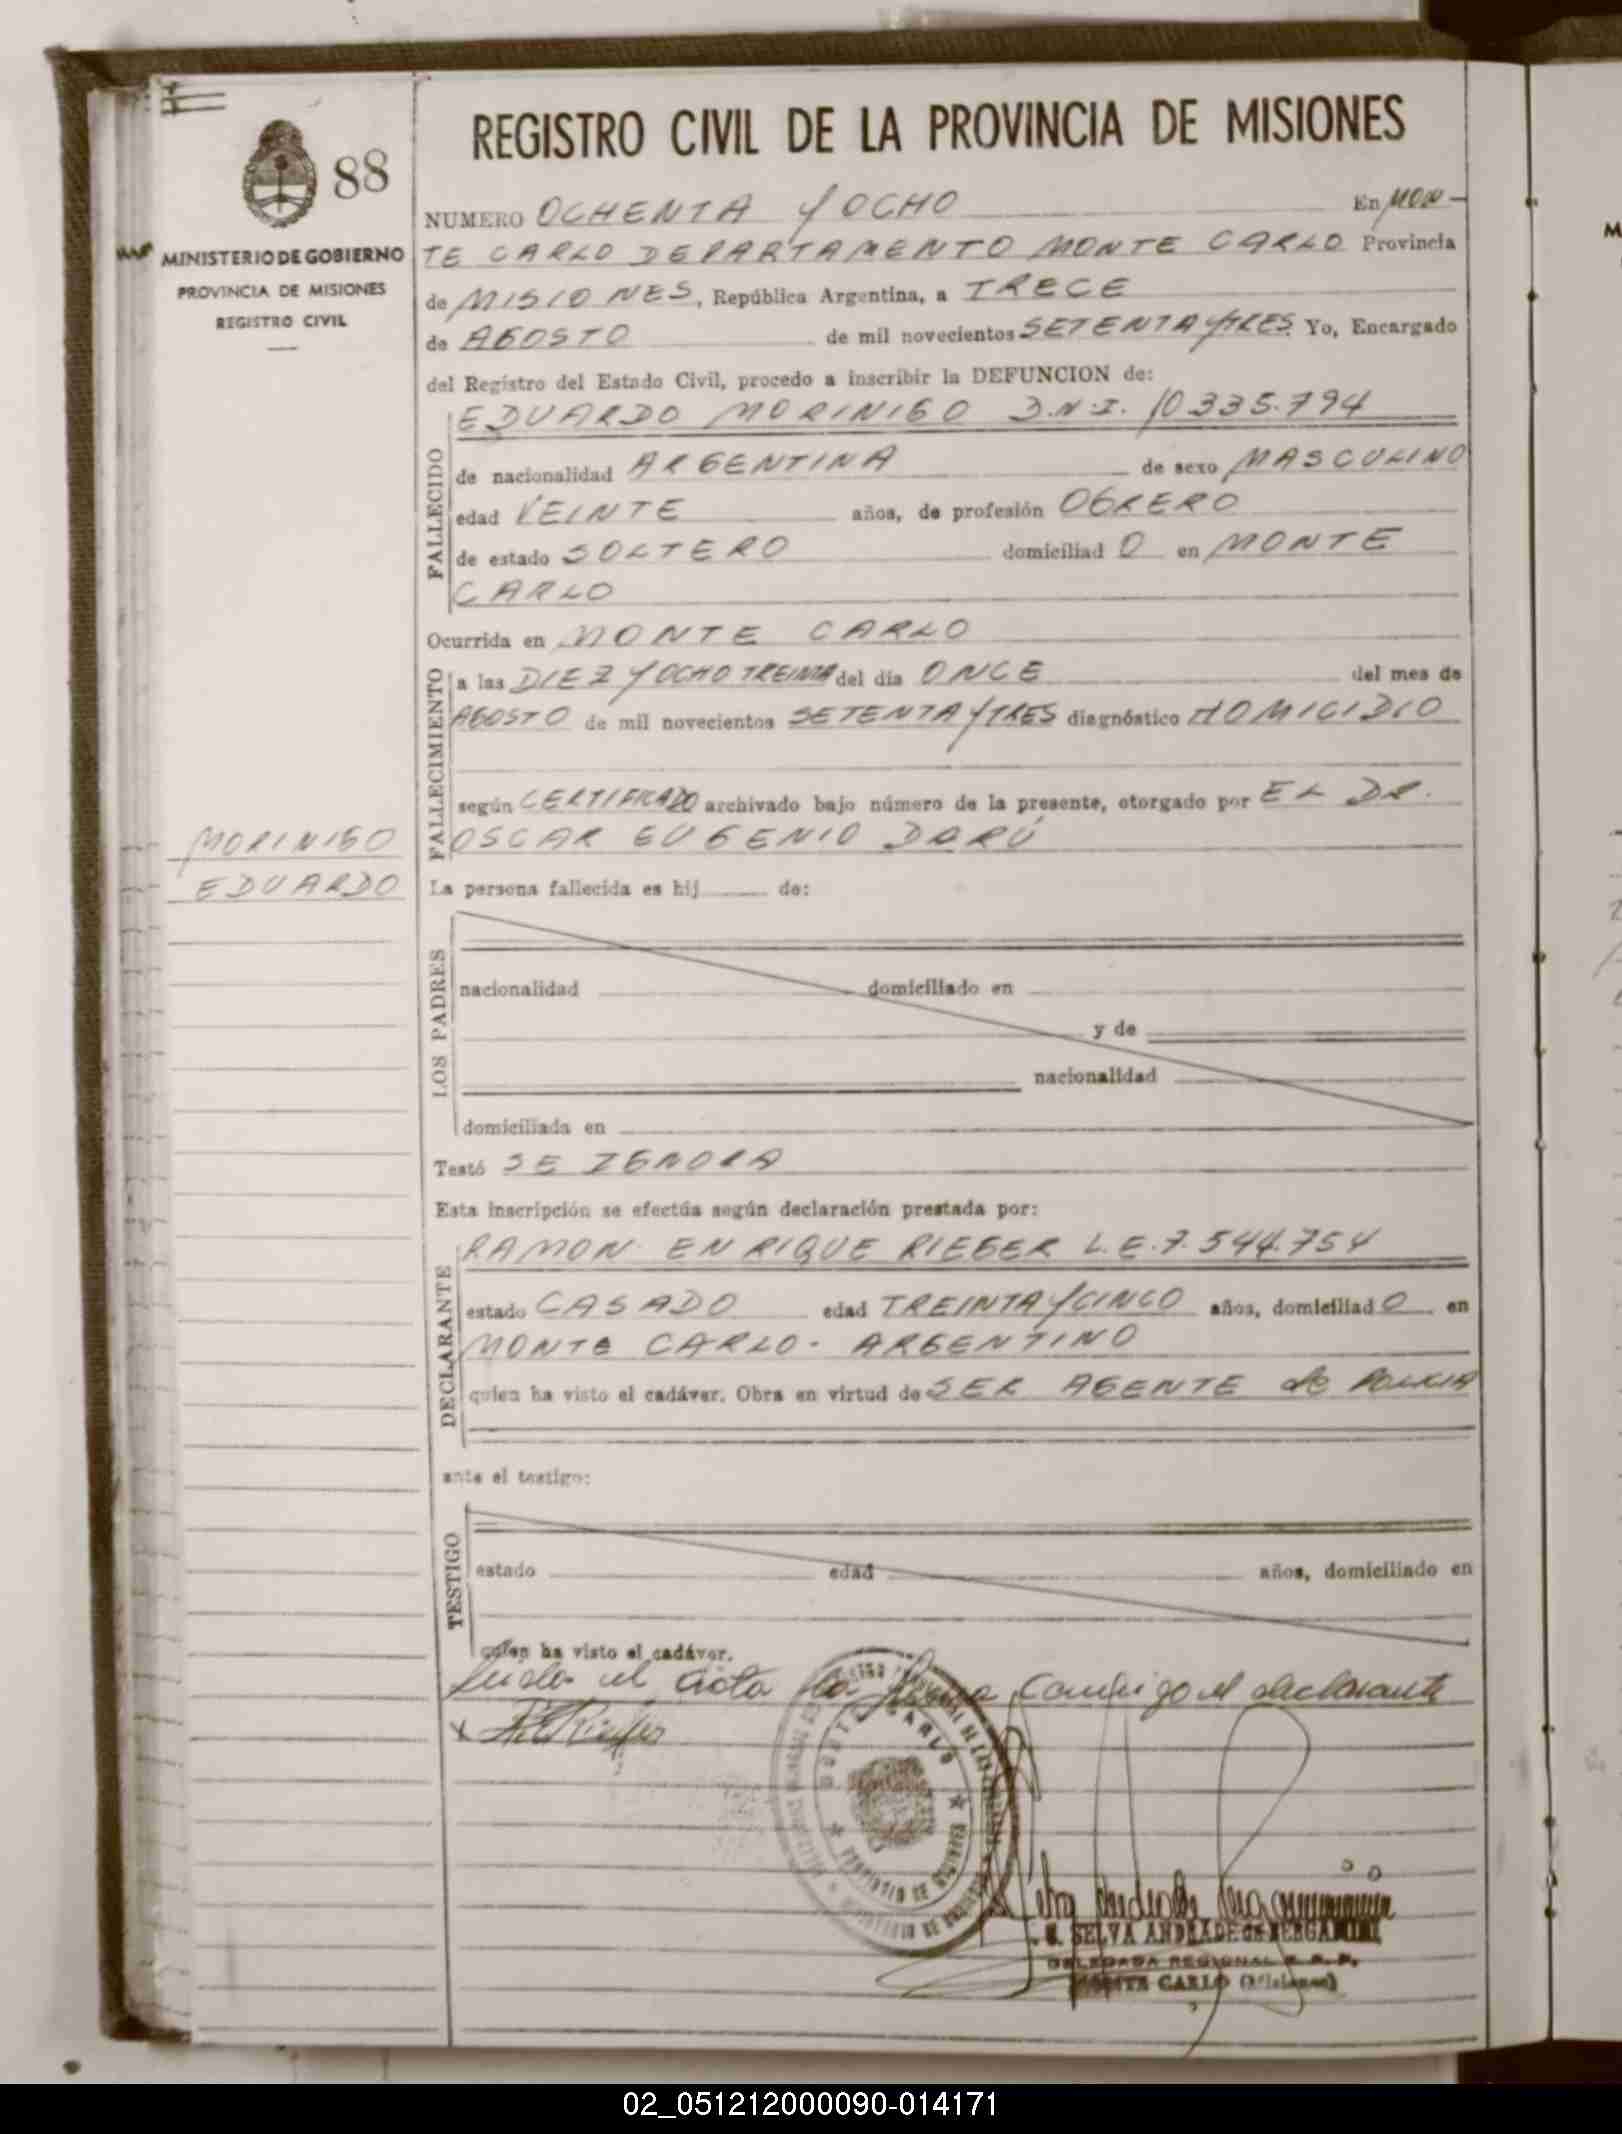 REGISTRO CIVIL DE LA PROVINCIA DE MISIONES
88
MINISTERIO DE GOBIERNO
PROVINCIA DE MISIONES
REGISTRO CIVIL
NUMERO OCHENTA Y OCHO En MON-
TE CARLO DEPARTAMENTO MONTE CARLO Provincia
de MISIONES, República Argentina, a TRECE
de AGOSTO de mil novecientos SETENTA Y TRES Yo, Encargado
del Registro del Estado Civil, procedo a inscribir la DEFUNCION de:
FALLECIDO
EDUARDO MORINIGO D.N.I. 10335.794
de nacionalidad ARGENTINA de sexo MASCULINO
edad VEINTE años, de profesión OBRERO
de estado SOLTERO domiciliad O en MONTE
CARLO
Ocurrida en MONTE CARLO
FALLECIMIENTO
a las DIEZ Y OCHO TREINTA del día ONCE del mes de
AGOSTO de mil novecientos SETENTA Y TRES diagnóstico HOMICIDIO
según CERTIFICADO archivado bajo número de la presente, otorgado por EL DR.
OSCAR EUGENIO DARÚ
MORINIGO
EDUARDO
La persona fallecida es hij de:
LOS PADRES
nacionalidad domiciliado en
y de
nacionalidad
domiciliada en
Testó SE IGNORA
Esta inscripción se efectúa según declaración prestada por:
DECLARANTE
RAMON ENRIQUE RIEGER L.E.7.544.754
estado CASADO edad TREINTA Y CINCO años, domiciliad O en
MONTE CARLO- ARGENTINO
quien ha visto el cadáver. Obra en virtud de SER AGENTE de POLICIA
ante el testigo:
TESTIGO
estado edad años, domiciliado en
quien ha visto el cadáver.
leida el acta la firma conmigo el declarante
MONTE CARLO
SELVA ANDRADE de BERGAMINI
DELEGADA REGIONAL R. P.
MONTE CARLO (Misiones)
02_051212000090-014171